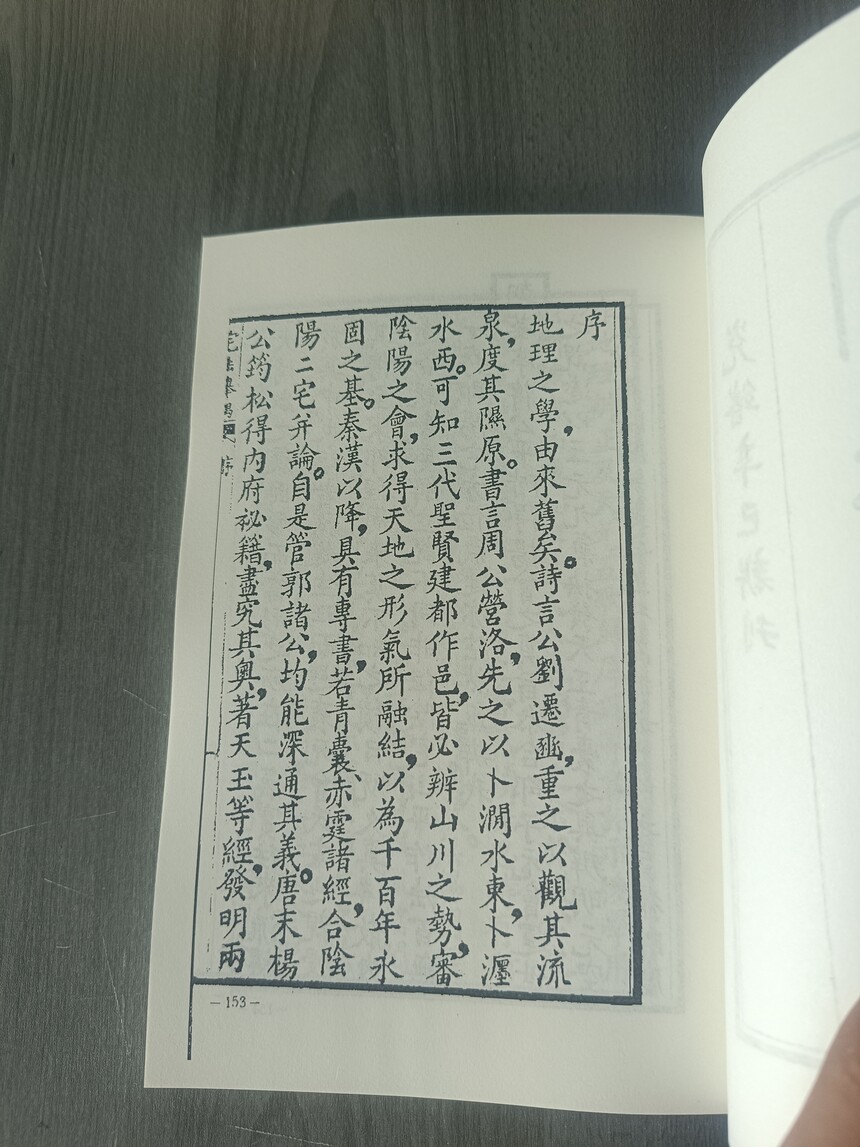 序
地理之學，由來舊矣。詩言公劉遷豳，重之以觀其流
泉，度其隰原。書言周公營洛，先之以卜澗水東，卜瀍
水西。可知三代聖賢建都作邑，皆必辨山川之勢，審
陰陽之會，求得天地之形氣所融結，以為千百年永
固之基。秦漢以降，具有專書，若青囊、赤霆諸經，合陰
陽二宅并論。自是管郭諸公，均能深通其義。唐末楊
公筠松得內府祕籍，盡究其奧，著天玉等經，發明兩
宅法舉隅 序
— 153 —
光緒辛巳新刊